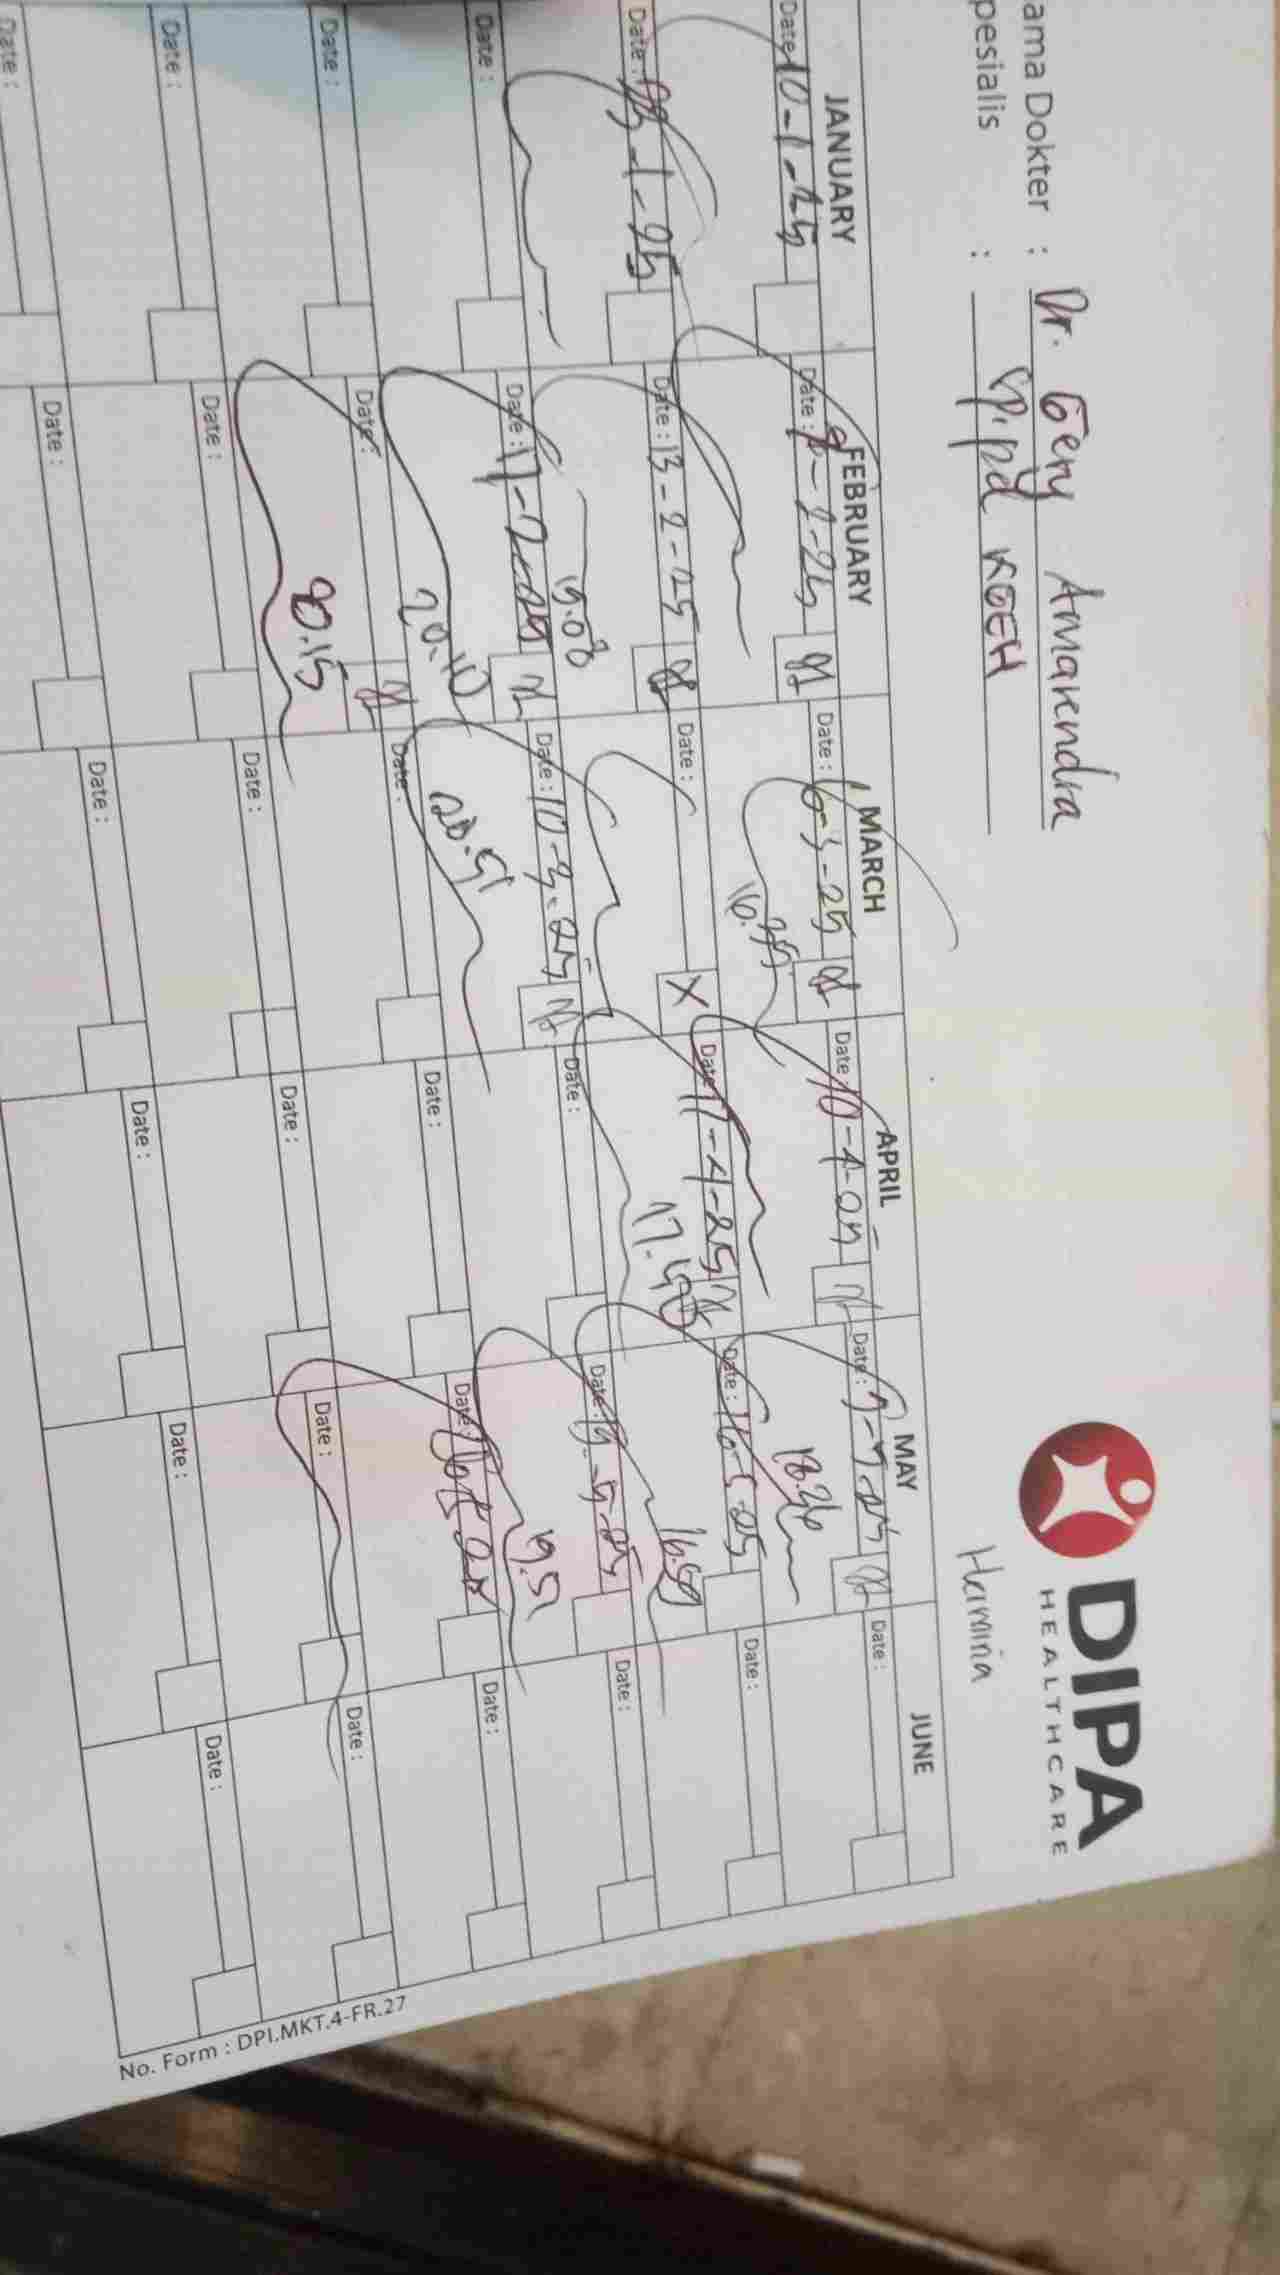 DIPA
HEALTHCARE
ama Dokter : Dr. Gery Amarendra
pesialis : Sp.pd KGEH
JANUARY FEBRUARY MARCH APRIL MAY JUNE
Date: 10-1-25 Date: -2-25 Date: 6-3-25 Date: 10-4-25 Date: Date:
16.39 18.26
Date: -1-25 Date: 13-2-25 Date: X Date: 17-4-25 Date: 16-5-25 Date:
19.08 17.50 16.59
Date: Date: 17-2-25 Date: 10-3-25 Date: Date: 19-5-25 Date:
20.10 20.51 19.51
Date: Date: Date: Date: Date: Date:
20.15
Date: Date: Date: Date: Date: Date:
Date: Date: Date: Date: Date: Date:
No. Form : DPI.MKT.4-FR.27